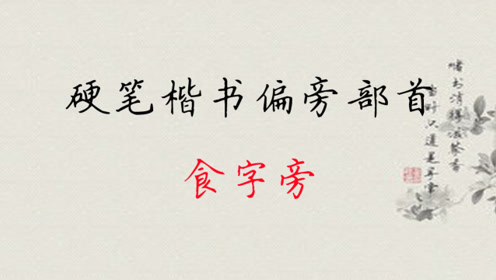 硬笔楷书偏旁部首
食字旁
赌书消得泼茶香
当时只道是寻常